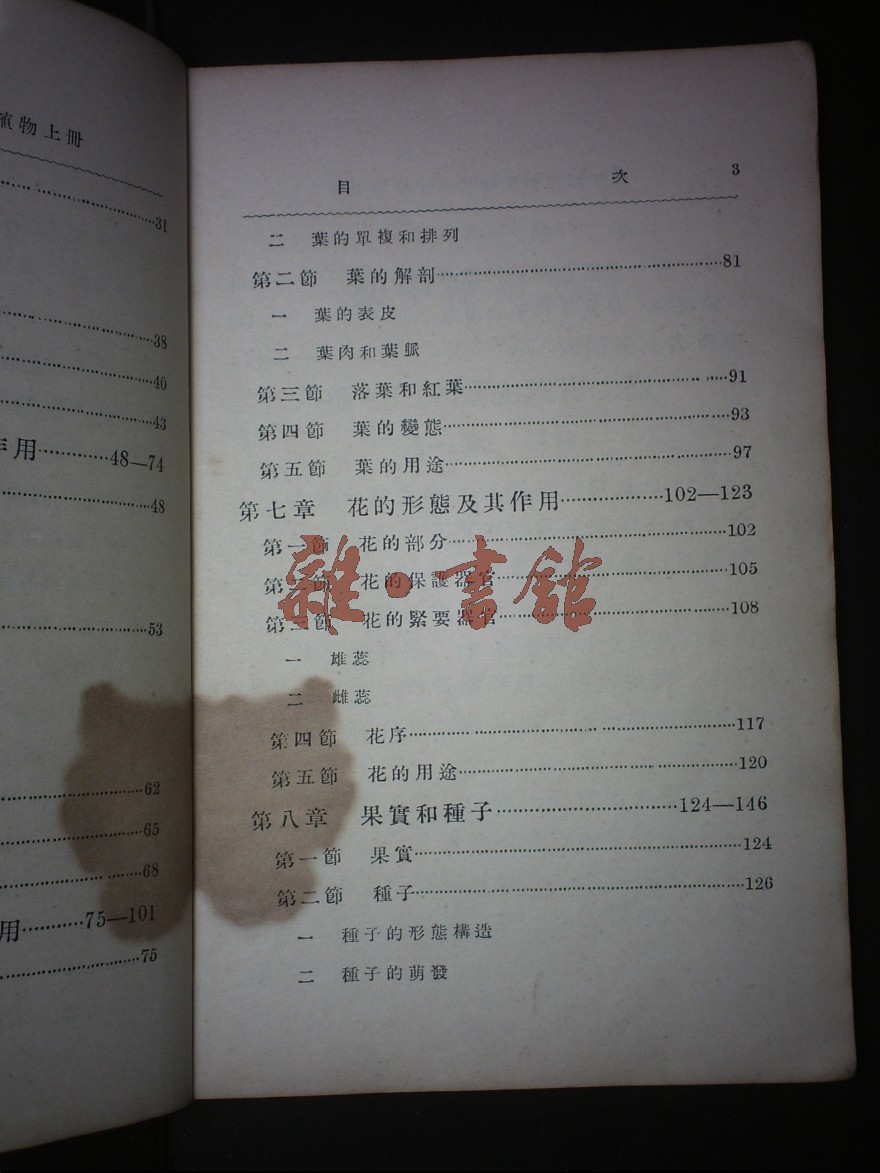 植物上冊
31
38
40
43
作用………48—74
48
53
62
65
68
用………75—101
75
目 次 3
二 葉的單複和排列
第二節 葉的解剖………81
一 葉的表皮
二 葉肉和葉脈
第三節 落葉和紅葉………91
第四節 葉的變態………93
第五節 葉的用途………97
第七章 花的形態及其作用………102—123
第一節 花的部分………102
第二節 花的保護器官………105
第三節 花的緊要器官………108
一 雄蕊
二 雌蕊
第四節 花序………117
第五節 花的用途………120
第八章 果實和種子………124—146
第一節 果實………124
第二節 種子………126
一 種子的形態構造
二 種子的萌發
雜·書館